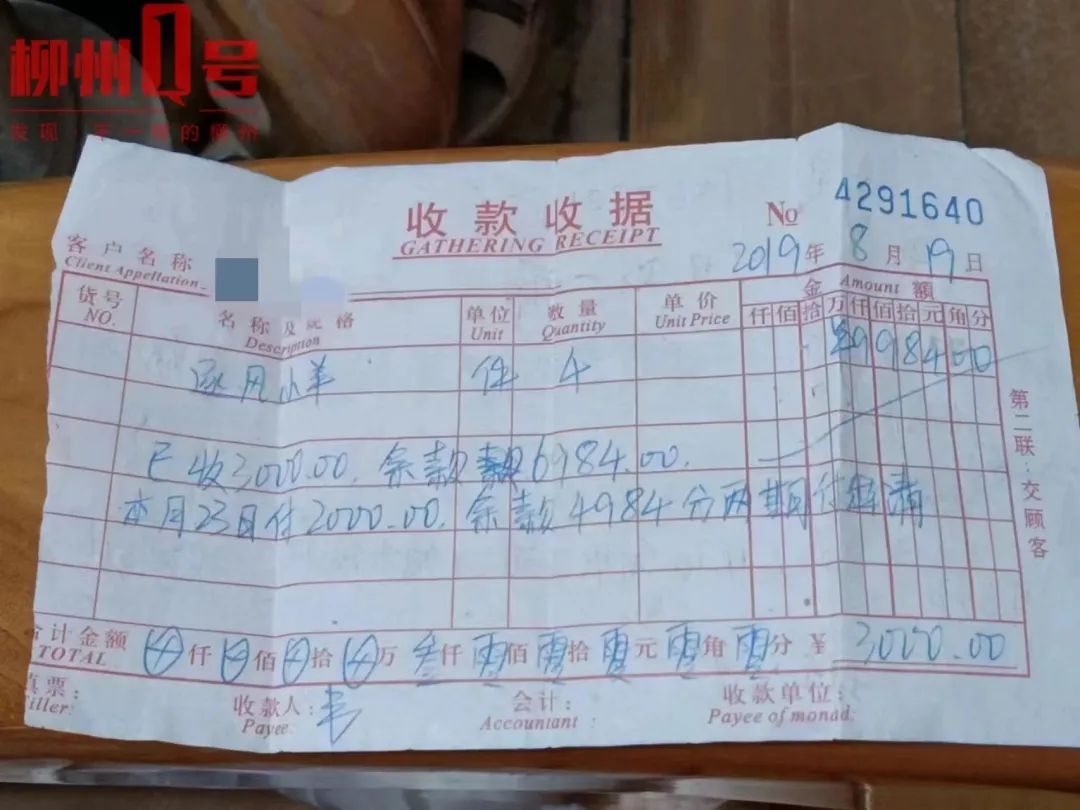 柳州Q号
发现不一样的柳州
收款收据
GATHERING RECEIPT
№ 4291640
客户名称
Client Appellation
2019年8月19日
货号 NO.
名称及规格 Description
单位 Unit
数量 Quantity
单价 Unit Price
金 Amount 额
仟佰拾万仟佰拾元角分
件 4 998400
已收3000.00. 余款6984.00.
本月23日付2000.00. 余款4984分两期付清
第二联:交顾客
计金额 仟 佰 拾 万 叁仟零佰零拾零元零角零分 ¥ 3000.00
TOTAL
真票: 收款人:韦 会计: 收款单位:
iller: Payee: Accountant : Payee of monad: